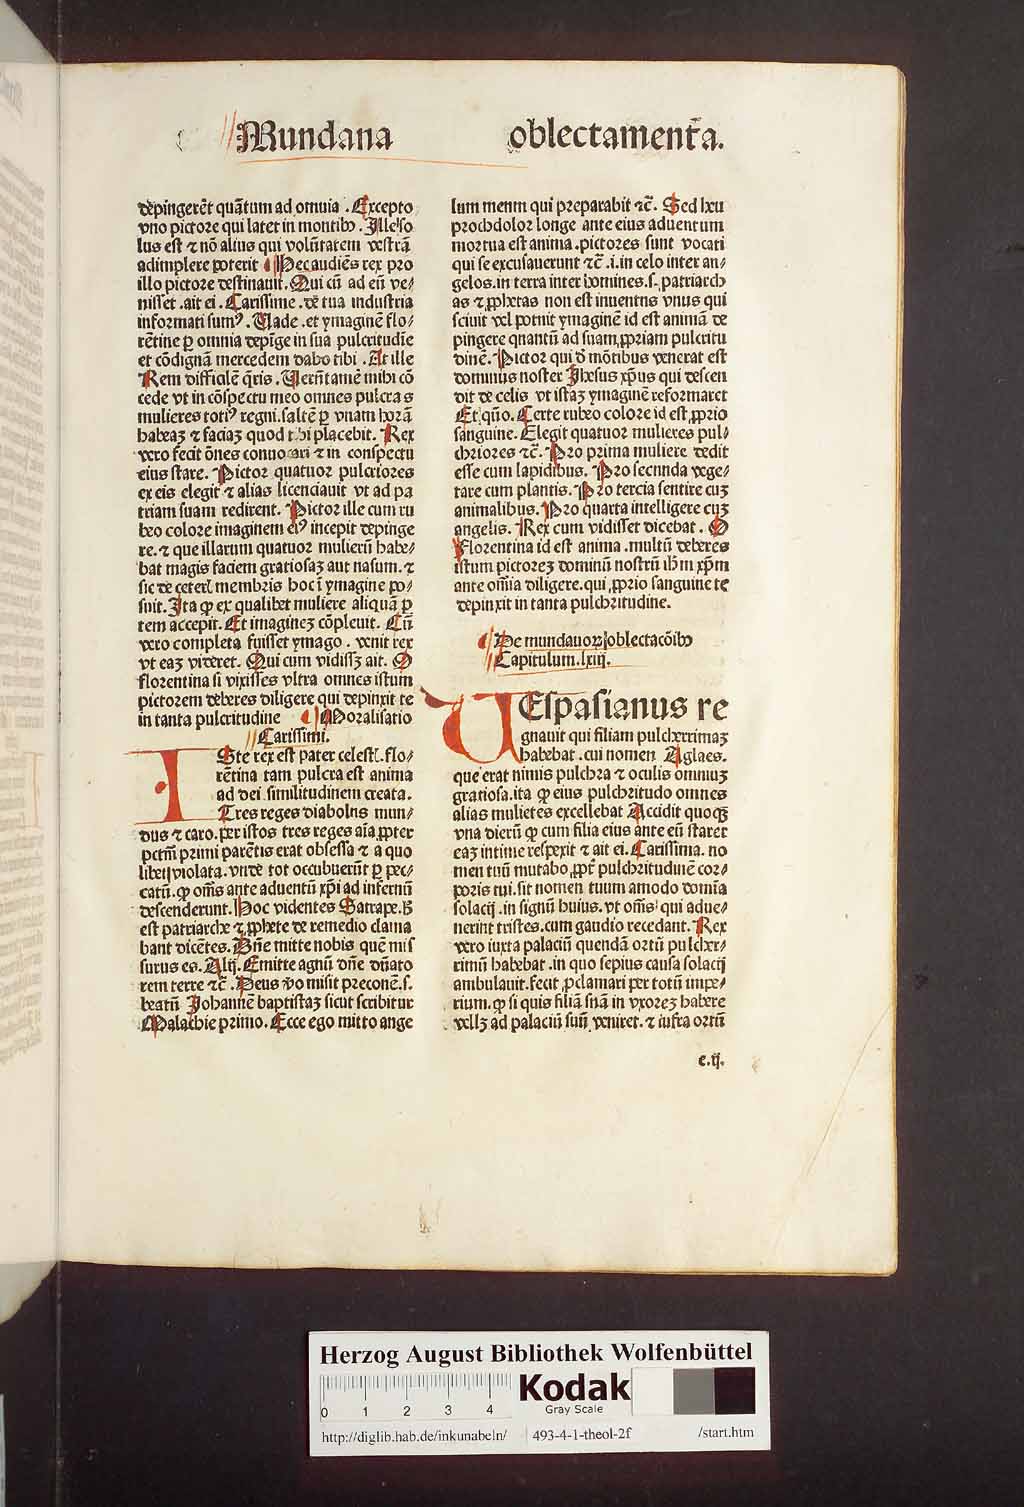 Mundana oblectamenta.
depingerēt quātum ad omnia . Excepto
vno pictore qui latet in montibꝰ . Ille so
lus est ⁊ nō alius qui volūtatem vestrā
adimplere poterit Hec audiēs rex pro
illo pictore destinauit. Qui cū ad eū ve⸗
nisset .ait ei . Carissime . de tua industria
informati sumꝰ . Uade .et ymaginē flo⸗
rētine ꝑ omnia depīge in sua pulcritudīe
et cōdignā mercedem dabo tibi . At ille
Rem difficilē q̄ris . Uerūtamē mihi cō
cede vt in cōspectu meo omnes pulcras
mulieres totiꝰ regni.saltē ꝑ vnam horā
habeaꝫ ⁊ faciaꝫ quod tibi placebit. Rex
vero fecit ōnes conuocari ⁊ in conspectu
eius stare. Pictor quatuor pulcriores
ex eis elegit ⁊ alias licenciauit vt ad pa
triam suam redirent. Pictor ille cum ru
beo colore imaginem eiꝰ incepit depinge
re. ⁊ que illarum quatuor mulierū habe⸗
bat magis faciem gratiosaꝫ aut nasum. ⁊
sic de ceteris membris hoc ī ymagine po⸗
suit. Ita ꝙ ex qualibet muliere aliquā ꝑ
tem accepit. Et imagineꝫ cōpleuit. Cū
vero completa fuisset ymago . venit rex
vt eaꝫ videret. Qui cum vidissꝫ ait. O
florentina si vixisses vltra omnes istum
pictorem deberes diligere qui depinxit te
in tanta pulcritudine Moralisatio
Carissimi.
ISte rex est pater celest̄. flo⸗
rētina tam pulcra est anima
ad dei similitudinem creata.
Tres reges diabolus mun⸗
dus ⁊ caro. per istos tres reges aīa ꝓpter
pctm̄ primi parētis erat obsessa ⁊ a quo
libet violata. vnde tot occubuerūt ꝑ pec⸗
catū. ꝙ om̄s ante aduentū xp̄i ad infernū
descenderunt. Hoc videntes Satrape. ħ
est patriarche ⁊ ꝓphete de remedio clama
bant dicētes. Dn̄e mitte nobis quē mis
surus es. Alij. Emitte agnū dn̄e dn̄ato
rem terre ⁊c̄ . Deus v̄o misit preconē.s.
beatū Johannē baptistaꝫ sicut scribitur
Malachie primo. Ecce ego mitto ange
lum meum qui preparabit ⁊c̄. Sed heu
prochdolor longe ante eius aduentum
mortua est anima .pictores sunt vocati
qui se excusauerunt ⁊c̄ .i. in celo inter an⸗
gelos.in terra inter homines.s. patriarch
as ⁊ ꝓphetas non est inuentus vnus qui
sciuit vel potuit ymaginē id est animā de
pingere quantū ad suam ꝓpriam pulcritu
dinē. Pictor qui d̄ mōtibus venerat est
dominus noster Jhesus xp̄us qui descen
dit de celis vt istaꝫ ymaginē reformaret
Et qūo. Certe rubeo colore id est ꝓprio
sanguine. Elegit quatuor mulieres pul⸗
chriores ⁊c̄. Pro prima muliere dedit
esse cum lapidibus. Pro secunda vege⸗
tare cum plantis. Pro tercia sentire cuꝫ
animalibus. Pro quarta intelligere cuꝫ
angelis. Rex cum vidisset dicebat . O
Florentina id est anima .multū deberes
istum pictoreꝫ dominū nostrū ihm̄ xp̄m
ante om̄ia diligere.qui ꝓprio sanguine te
depinxit in tanta pulchritudine.
De mundanoꝝ oblectacōibꝰ
Capitulum.lxiij.
UEspasianus re
gnauit qui filiam pulcherrimaꝫ
habebat .cui nomen Aglaes.
que erat nimis pulchra ⁊ oculis omniuꝫ
gratiosa.ita ꝙ eius pulchritudo omnes
alias mulieres excellebat Accidit quoqꝫ
vna dierū ꝙ cum filia eius ante eū staret
eaꝫ intime respexit ⁊ ait ei. Carissima. no
men tuū mutabo ꝓpt̄ pulchritudinē cor⸗
poris tui.sit nomen tuum amodo domīa
solacij .in signū huius. vt om̄s qui adue⸗
nerint tristes.cum gaudio recedant. Rex
vero iuxta palaciū quendā ortū pulcher⸗
rimū habebat .in quo sepius causa solacij
ambulauit.fecit ꝓclamari per totū impe⸗
rium. ꝙ si quis filiā suā in vxoreꝫ habere
vellꝫ ad palaciū suū veniret. ⁊ infra ortū
c.ij.
Herzog August Bibliothek Wolfenbüttel
0 1 2 3 4
Kodak
Gray Scale
http://diglib.hab.de/inkunabeln/ 493-4-1-theol-2f /start.htm